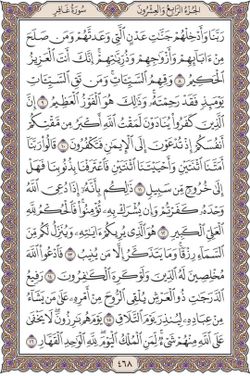 الجُزْءُ الرَّابِعُ وَالعِشْرُونَ
سُورَةُ غَافِرٍ
رَبَّنَا وَأَدْخِلْهُمْ جَنَّٰتِ عَدْنٍ ٱلَّتِى وَعَدتَّهُمْ وَمَن صَلَحَ
مِنْ ءَابَآئِهِمْ وَأَزْوَٰجِهِمْ وَذُرِّيَّٰتِهِمْ إِنَّكَ أَنتَ ٱلْعَزِيزُ
ٱلْحَكِيمُ ٨ وَقِهِمُ ٱلسَّيِّـَٔاتِ وَمَن تَقِ ٱلسَّيِّـَٔاتِ
يَوْمَئِذٍ فَقَدْ رَحِمْتَهُۥ وَذَٰلِكَ هُوَ ٱلْفَوْزُ ٱلْعَظِيمُ ٩ إِنَّ
ٱلَّذِينَ كَفَرُوا۟ يُنَادَوْنَ لَمَقْتُ ٱللَّهِ أَكْبَرُ مِن مَّقْتِكُمْ
أَنفُسَكُمْ إِذْ تُدْعَوْنَ إِلَى ٱلْإِيمَٰنِ فَتَكْفُرُونَ ١٠ قَالُوا۟ رَبَّنَآ
أَمَتَّنَا ٱثْنَتَيْنِ وَأَحْيَيْتَنَا ٱثْنَتَيْنِ فَٱعْتَرَفْنَا بِذُنُوبِنَا فَهَلْ
إِلَىٰ خُرُوجٍ مِّن سَبِيلٍ ١١ ذَٰلِكُم بِأَنَّهُۥٓ إِذَا دُعِىَ ٱللَّهُ
وَحْدَهُۥ كَفَرْتُمْ وَإِن يُشْرَكْ بِهِۦ تُؤْمِنُوا۟ فَٱلْحُكْمُ لِلَّهِ
ٱلْعَلِىِّ ٱلْكَبِيرِ ١٢ هُوَ ٱلَّذِى يُرِيكُمْ ءَايَٰتِهِۦ وَيُنَزِّلُ لَكُم مِّنَ
ٱلسَّمَآءِ رِزْقًا وَمَا يَتَذَكَّرُ إِلَّا مَن يُنِيبُ ١٣ فَٱدْعُوا۟ ٱللَّهَ
مُخْلِصِينَ لَهُ ٱلدِّينَ وَلَوْ كَرِهَ ٱلْكَٰفِرُونَ ١٤ رَفِيعُ
ٱلدَّرَجَٰتِ ذُو ٱلْعَرْشِ يُلْقِى ٱلرُّوحَ مِنْ أَمْرِهِۦ عَلَىٰ مَن يَشَآءُ
مِنْ عِبَادِهِۦ لِيُنذِرَ يَوْمَ ٱلتَّلَاقِ ١٥ يَوْمَ هُم بَٰرِزُونَ لَا يَخْفَىٰ
عَلَى ٱللَّهِ مِنْهُمْ شَىْءٌ لِّمَنِ ٱلْمُلْكُ ٱلْيَوْمَ لِلَّهِ ٱلْوَٰحِدِ ٱلْقَهَّارِ ١٦
٤٦٨